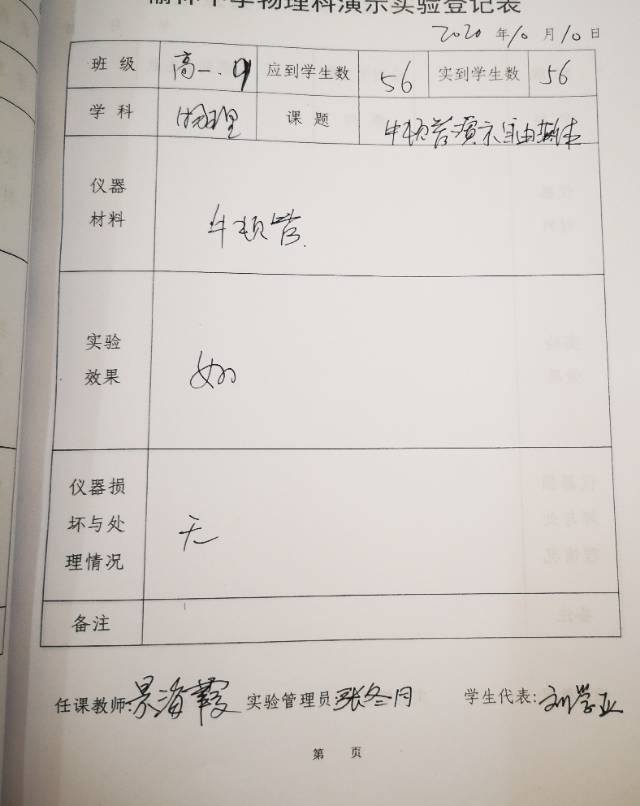 榆林中学物理科演示实验登记表
2020 年 10 月 10 日
班级 高一.9 应到学生数 56 实到学生数 56
学科 物理 课题 牛顿管演示自由落体
仪器
材料
牛顿管.
实验
效果
好
仪器损
坏与处
理情况
无
备注
任课教师: 景海霞 实验管理员: 张冬月 学生代表: 刘学亚
第 页